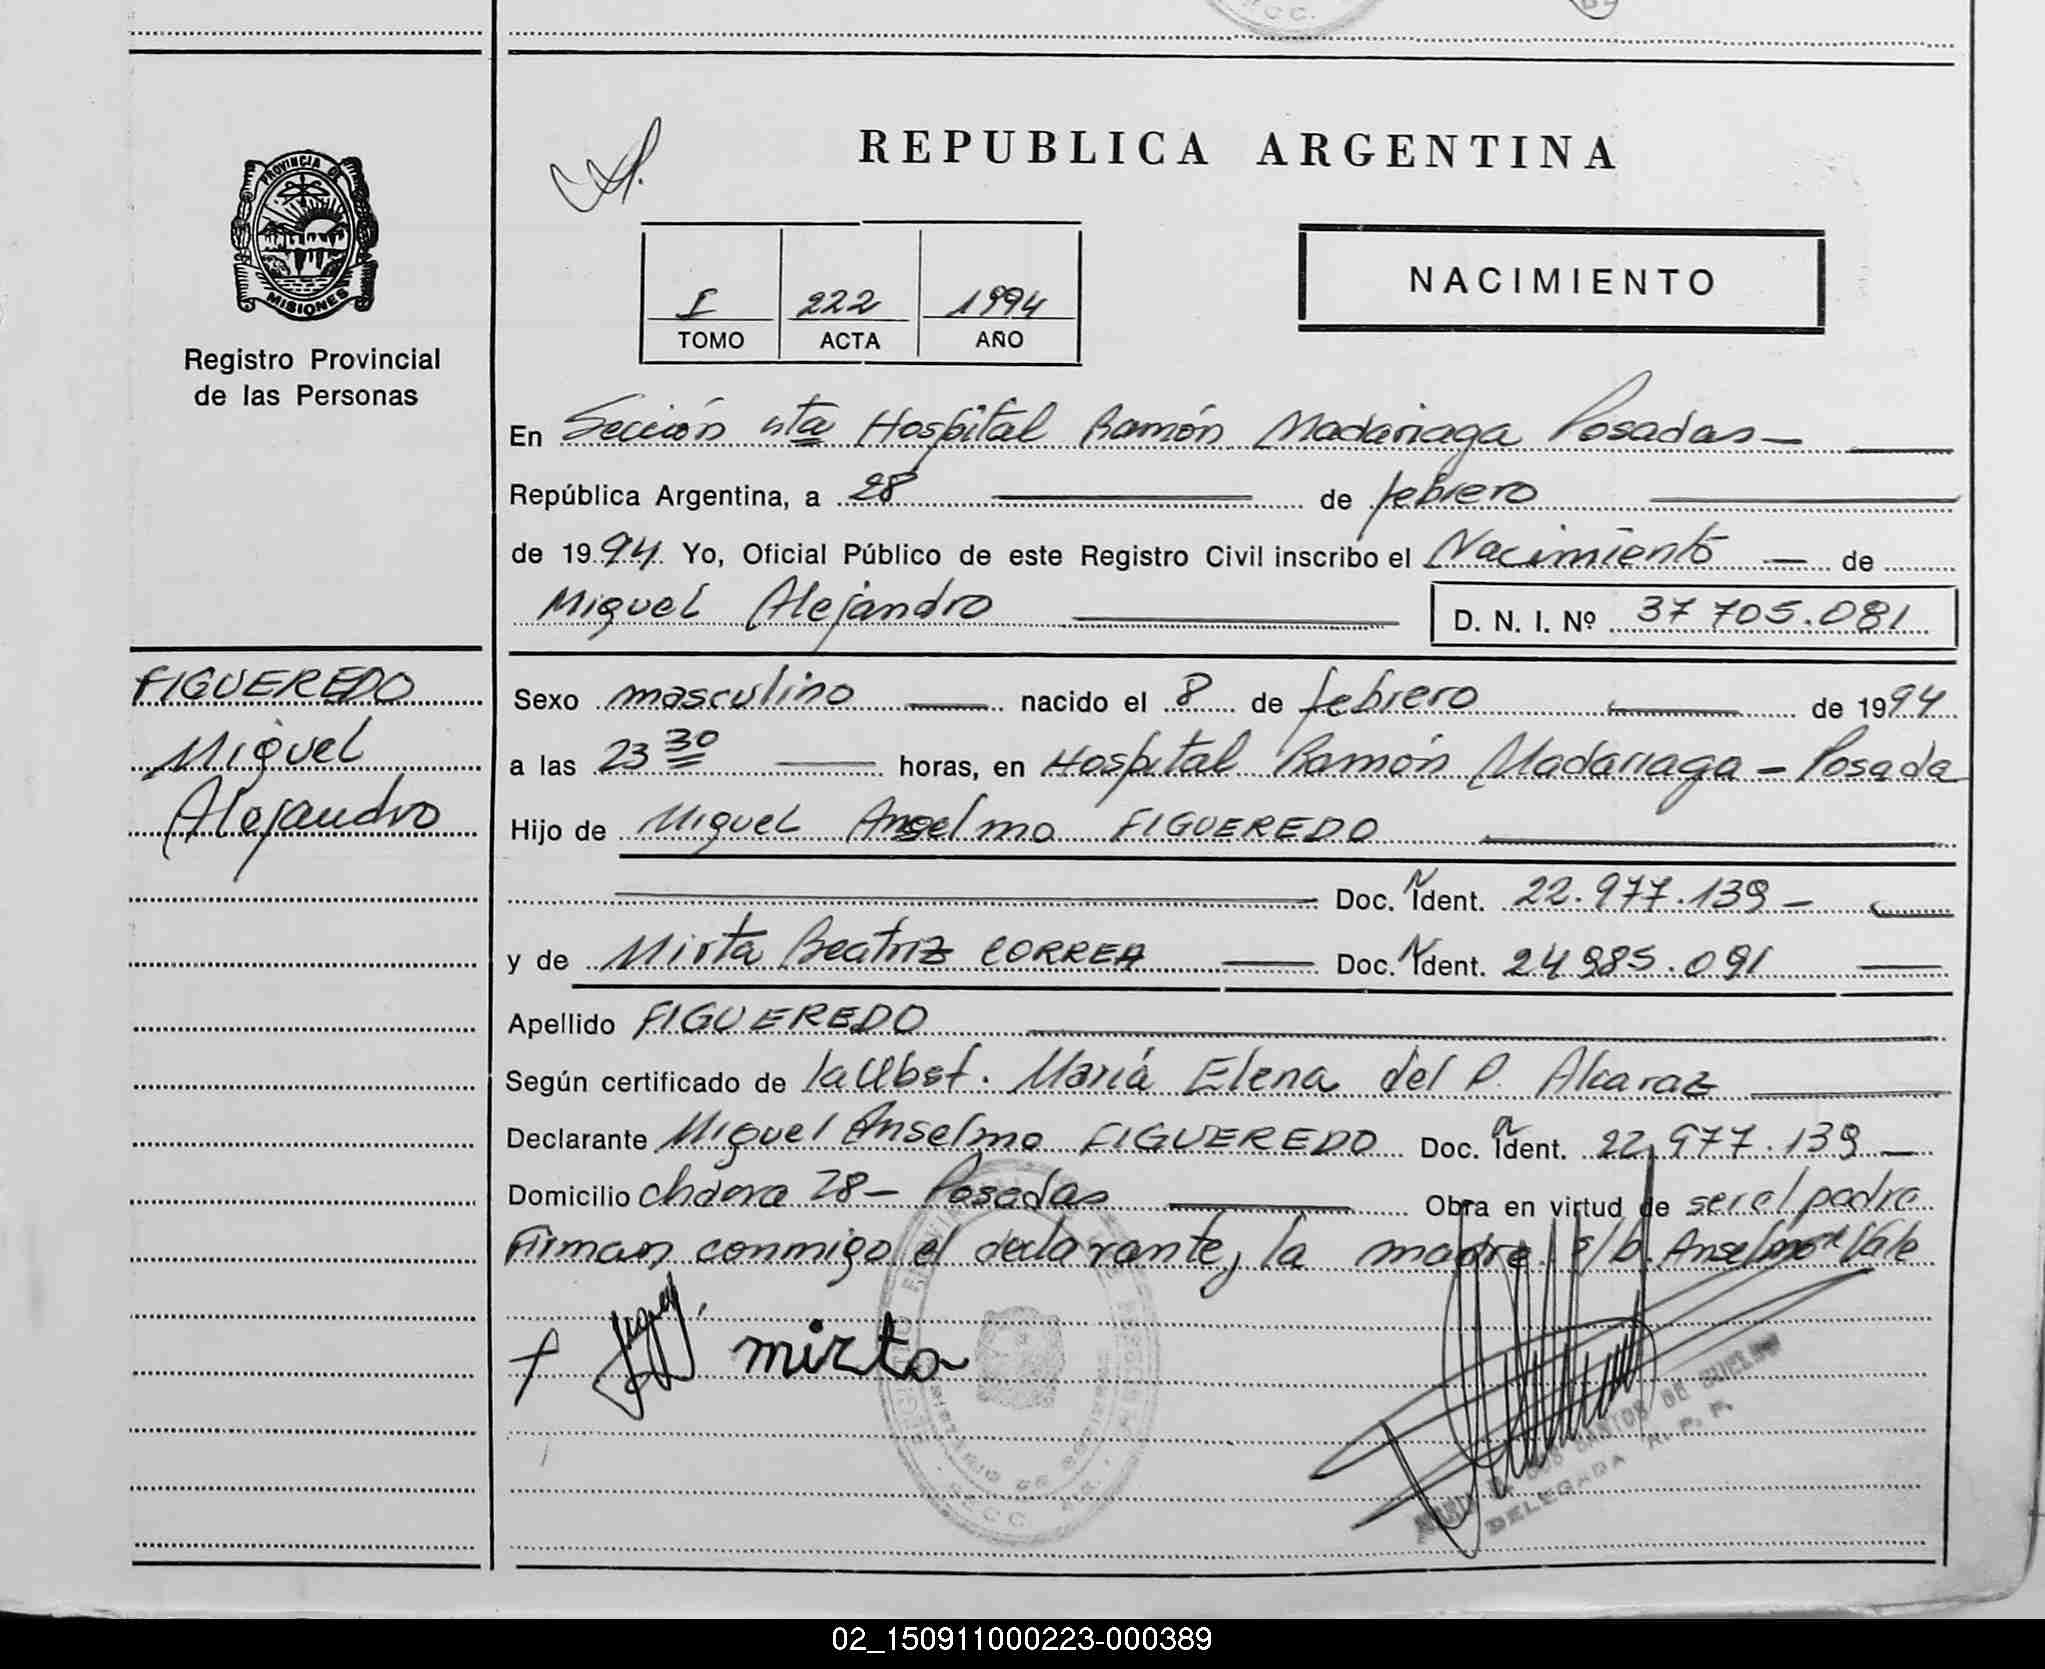 REPUBLICA ARGENTINA
PROVINCIA DE
MISIONES
Registro Provincial
de las Personas
I 222 1994
TOMO ACTA AÑO
NACIMIENTO
En Sección 4ta Hospital Ramón Madariaga Posadas —
República Argentina, a 28 de febrero
de 1994. Yo, Oficial Público de este Registro Civil inscribo el Nacimiento — de
Miguel Alejandro
D. N. I. Nº 37 705.081
FIGUEREDO
Miguel
Alejandro
Sexo masculino — nacido el 8 de febrero — de 1994
a las 23 30 — horas, en Hospital Ramón Madariaga - Posada
Hijo de Miguel Anselmo FIGUEREDO
Doc. Ident. 22.977.139 -
y de Mirta Beatriz CORREA — Doc. Ident. 24 985.091 —
Apellido FIGUEREDO
Según certificado de la Obst. María Elena del P. Alcaraz
Declarante Miguel Anselmo FIGUEREDO Doc. Ident. 22.977.139 —
Domicilio chacra 28 - Posadas — Obra en virtud de ser el padre
Firman conmigo el declarante, la madre. s/b. Anselmo Vale
mirta
DOS SANTOS DE
DELEGADA R. P. P.
02_150911000223-000389